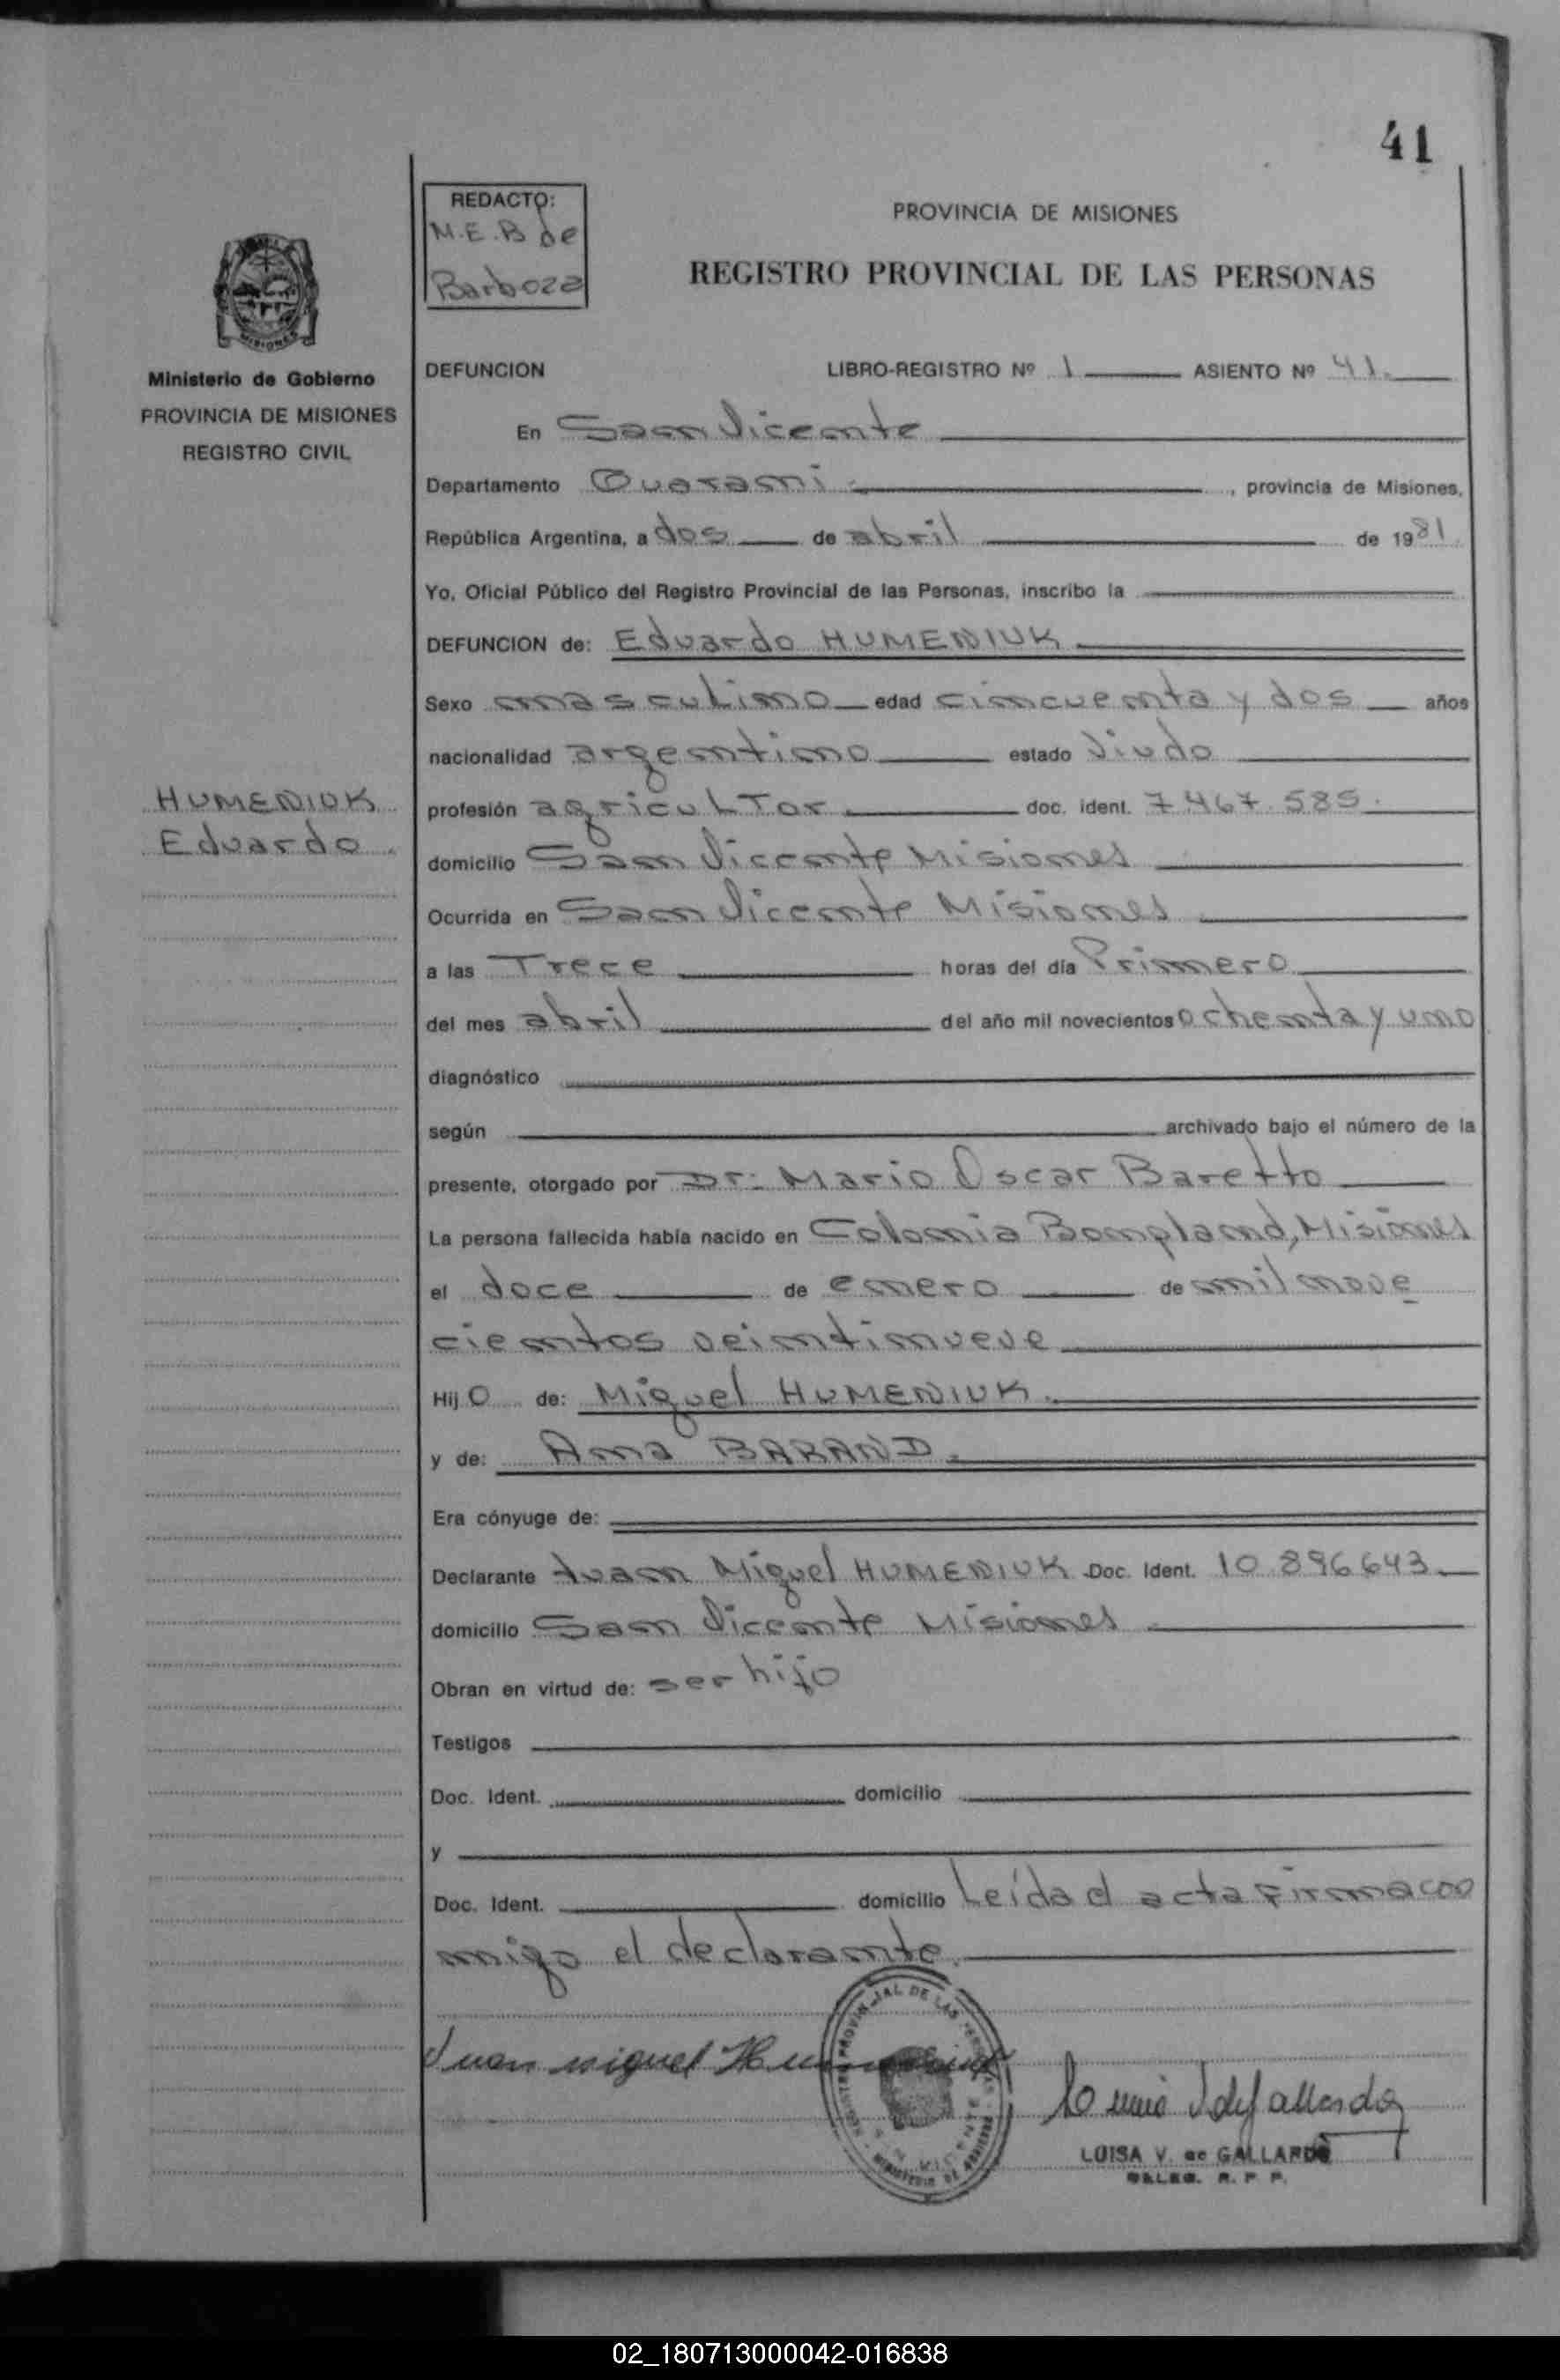 41
REDACTO:
M.E.B de
Barboza
PROVINCIA DE MISIONES
REGISTRO PROVINCIAL DE LAS PERSONAS
Ministerio de Gobierno
PROVINCIA DE MISIONES
REGISTRO CIVIL
DEFUNCION LIBRO-REGISTRO Nº 1 ASIENTO Nº 41.
En San Vicente
Departamento Guarani, provincia de Misiones,
República Argentina, a dos de abril de 1981.
Yo, Oficial Público del Registro Provincial de las Personas, inscribo la
DEFUNCION de: Eduardo HUMENIUK
Sexo masculino edad cincuenta y dos años
nacionalidad argentino estado Viudo
HUMENIUK
Eduardo.
profesión agricultor doc. ident. 7.467.585.
domicilio San Vicente Misiones
Ocurrida en San Vicente Misiones
a las Trece horas del día Primero
del mes abril del año mil novecientos ochenta y uno
diagnóstico
según archivado bajo el número de la
presente, otorgado por Dr. Mario Oscar Baretto
La persona fallecida había nacido en Colonia Bonpland, Misiones
el doce de enero de mil nove
cientos veintinueve
Hijo de: Miguel HUMENIUK.
y de: Ana BARAND.
Era cónyuge de:
Declarante Juan Miguel HUMENIUK Doc. Ident. 10.896.643
domicilio San Vicente Misiones
Obran en virtud de: ser hijo
Testigos
Doc. Ident. domicilio
y
Doc. Ident. domicilio Leída el acta firma con
migo el declarante.
Juan Miguel Humeniuk
LUISA V. de GALLARDO
DELEG. R. P. P.
02_180713000042-016838